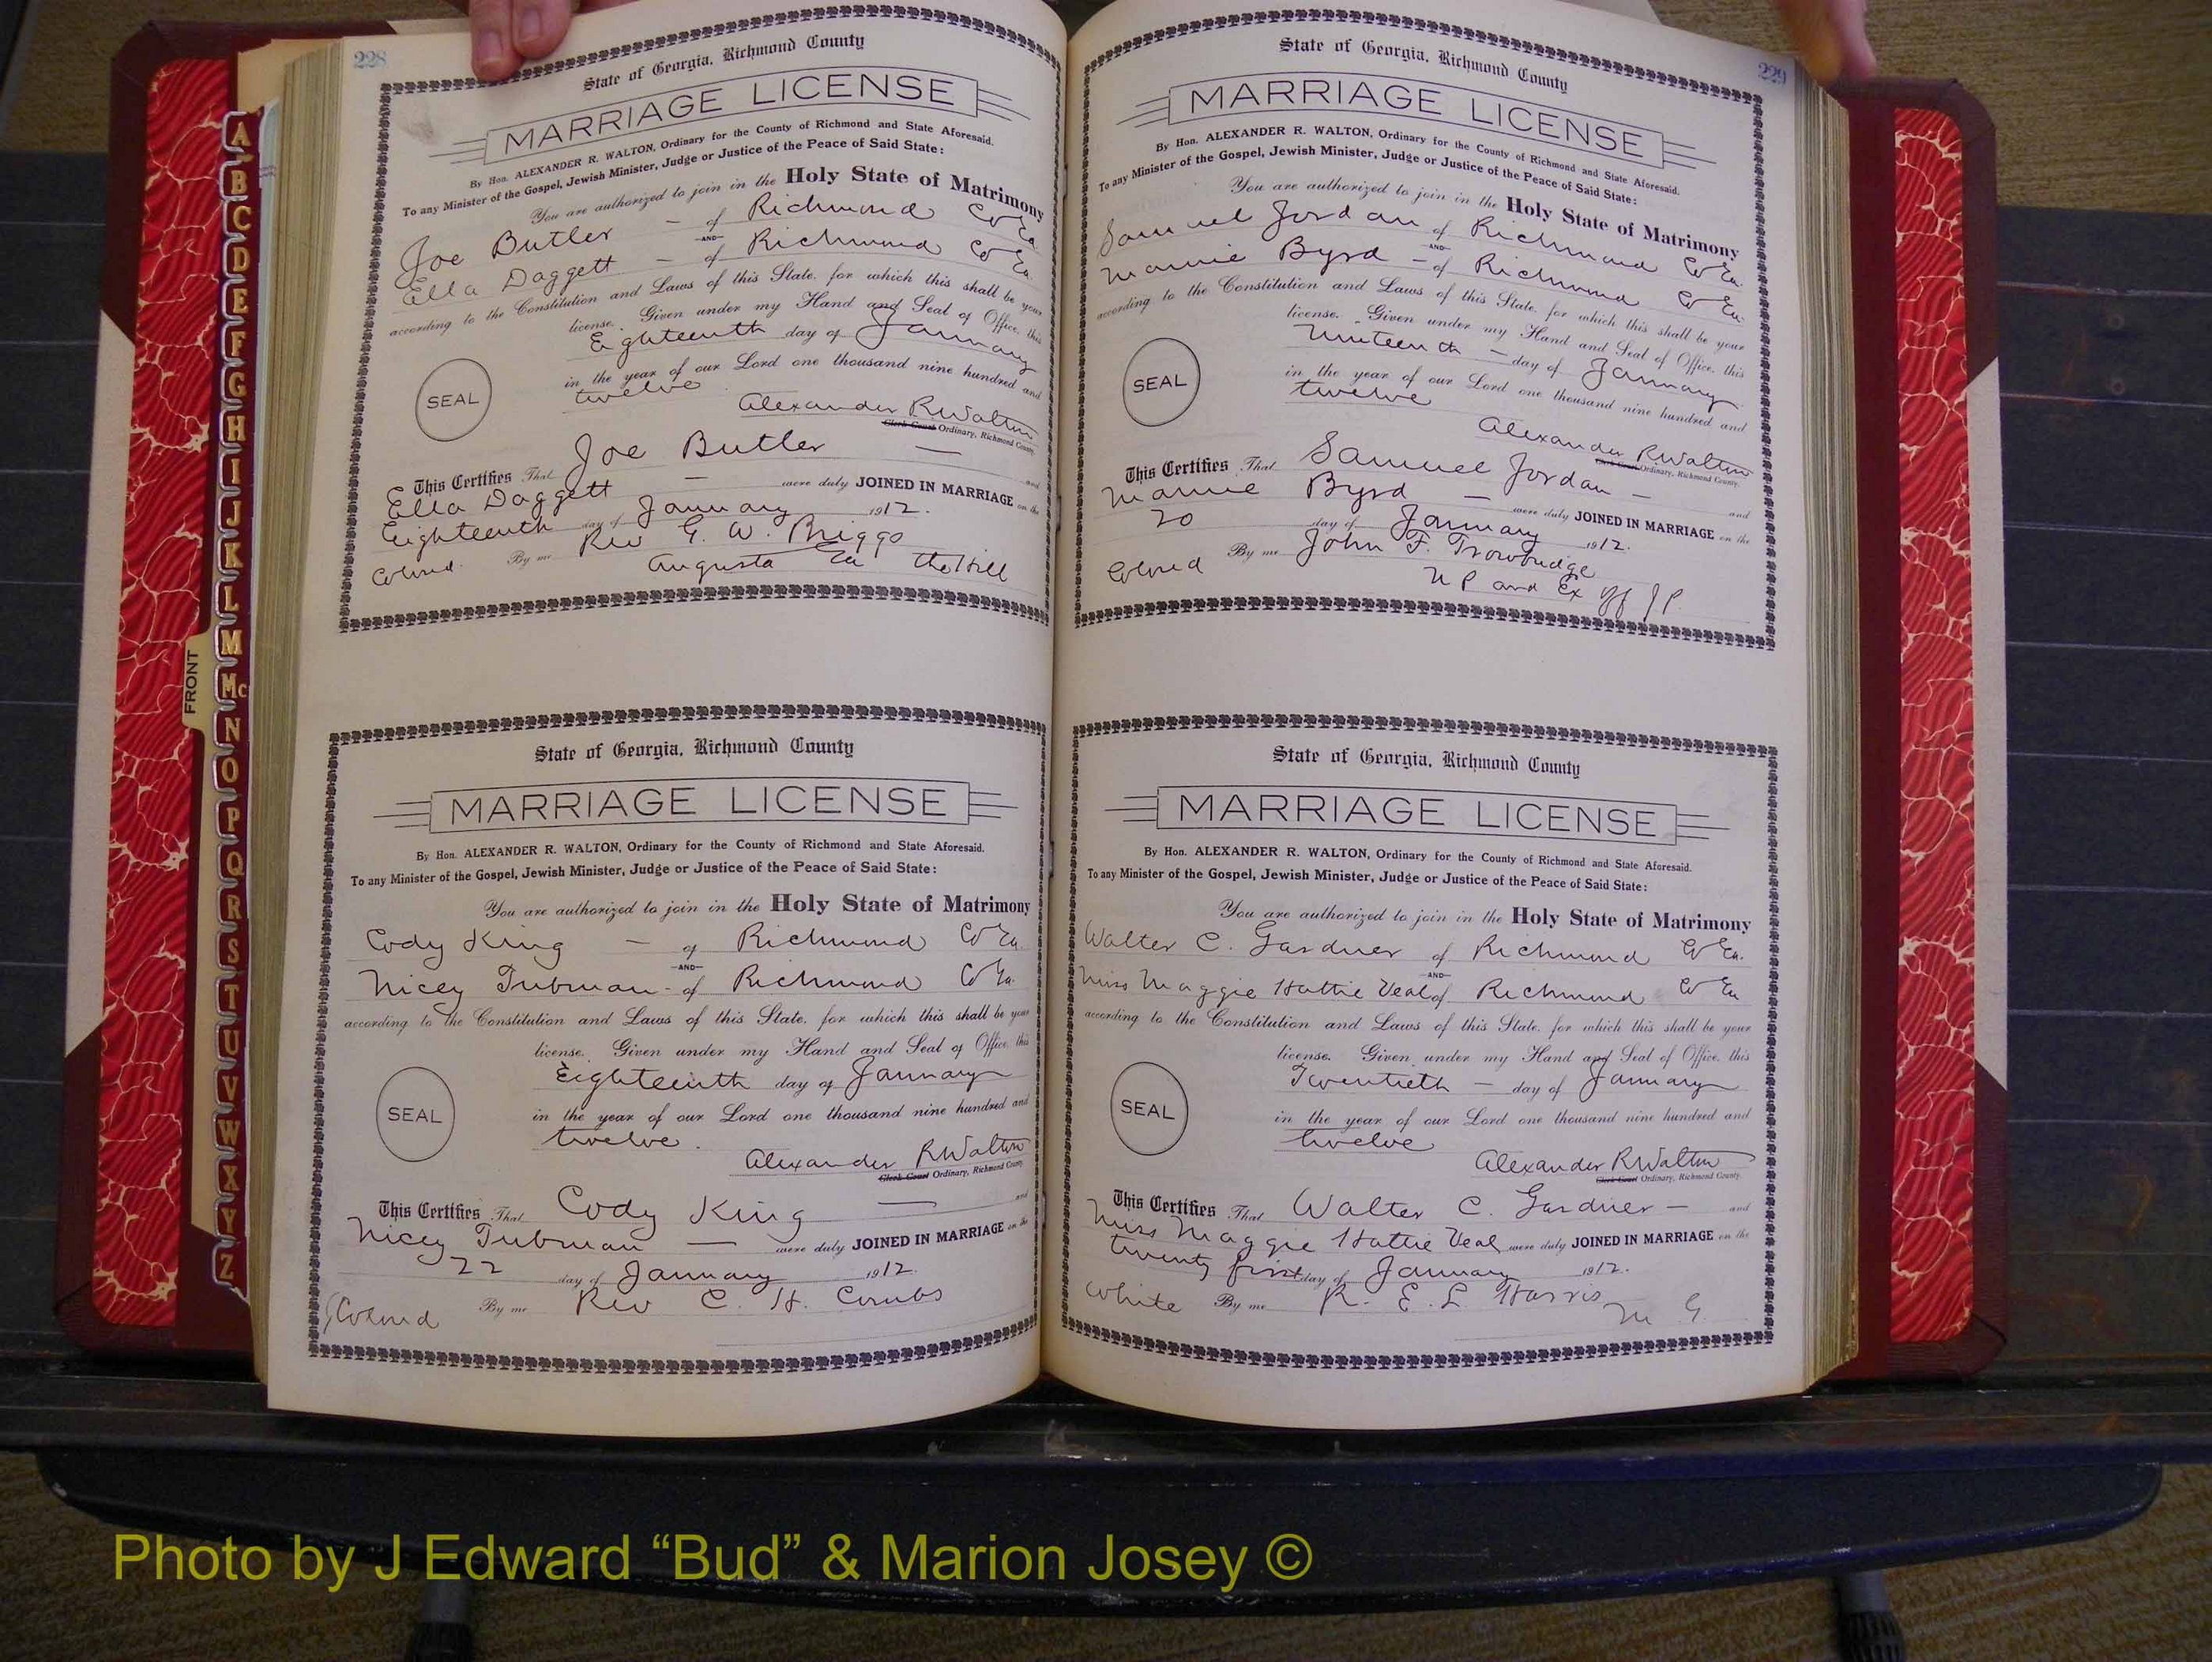 228
State of Georgia, Richmond County
MARRIAGE LICENSE
By Hon. ALEXANDER R. WALTON, Ordinary for the County of Richmond and State Aforesaid.
To any Minister of the Gospel, Jewish Minister, Judge or Justice of the Peace of Said State:
You are authorized to join in the Holy State of Matrimony
Joe Butler - of Richmond Co Ga.
AND
Ella Daggett - of Richmond Co Ga.
according to the Constitution and Laws of this State, for which this shall be your
license. Given under my Hand and Seal of Office, this
Eighteenth day of January
in the year of our Lord one thousand nine hundred and
twelve
SEAL
Alexander R Walton
Clerk Court Ordinary, Richmond County.
This Certifies That Joe Butler — and
Ella Daggett - were duly JOINED IN MARRIAGE on the
Eighteenth day of January 1912.
Colored. By me Rev G. W. Briggs
Augusta Ga The Hill
State of Georgia, Richmond County
MARRIAGE LICENSE
By Hon. ALEXANDER R. WALTON, Ordinary for the County of Richmond and State Aforesaid.
To any Minister of the Gospel, Jewish Minister, Judge or Justice of the Peace of Said State:
You are authorized to join in the Holy State of Matrimony
Cody King - of Richmond Co Ga.
AND
Nicey Tubman - of Richmond Co Ga.
according to the Constitution and Laws of this State, for which this shall be your
license. Given under my Hand and Seal of Office, this
Eighteenth day of January
in the year of our Lord one thousand nine hundred and
twelve.
SEAL
Alexander R Walton
Clerk Court Ordinary, Richmond County
This Certifies That Cody King — and
Nicey Tubman — were duly JOINED IN MARRIAGE on the
22 day of January 1912.
Colored By me Rev C. H. Combs
229
State of Georgia, Richmond County
MARRIAGE LICENSE
By Hon. ALEXANDER R. WALTON, Ordinary for the County of Richmond and State Aforesaid.
To any Minister of the Gospel, Jewish Minister, Judge or Justice of the Peace of Said State:
You are authorized to join in the Holy State of Matrimony
Samuel Jordan of Richmond Co Ga.
AND
Mamie Byrd - of Richmond Co Ga.
according to the Constitution and Laws of this State, for which this shall be your
license. Given under my Hand and Seal of Office, this
Nineteenth - day of January
in the year of our Lord one thousand nine hundred and
twelve
SEAL
Alexander R Walton
Clerk Court Ordinary, Richmond County.
This Certifies That Samuel Jordan - and
Mamie Byrd — were duly JOINED IN MARRIAGE on the
20 day of January 1912.
Colored By me John F. Trowbridge
N P and Ex Off J P.
State of Georgia, Richmond County
MARRIAGE LICENSE
By Hon. ALEXANDER R. WALTON, Ordinary for the County of Richmond and State Aforesaid.
To any Minister of the Gospel, Jewish Minister, Judge or Justice of the Peace of Said State:
You are authorized to join in the Holy State of Matrimony
Walter C. Gardner of Richmond Co Ga.
AND
Miss Maggie Hattie Veal of Richmond Co Ga
according to the Constitution and Laws of this State, for which this shall be your
license. Given under my Hand and Seal of Office, this
Twentieth - day of January
in the year of our Lord one thousand nine hundred and
twelve
SEAL
Alexander R Walton
Clerk Court Ordinary, Richmond County.
This Certifies That Walter C. Gardner - and
Miss Maggie Hattie Veal were duly JOINED IN MARRIAGE on the
twenty first day of January 1912.
White By me R. E. L Harris
M G.
FRONT
A
B
C
D
E
F
G
H
I
J
K
L
M
Mc
N
O
P
Q
R
S
T
U
V
W
X
Y
Z
Photo by J Edward “Bud” & Marion Josey ©